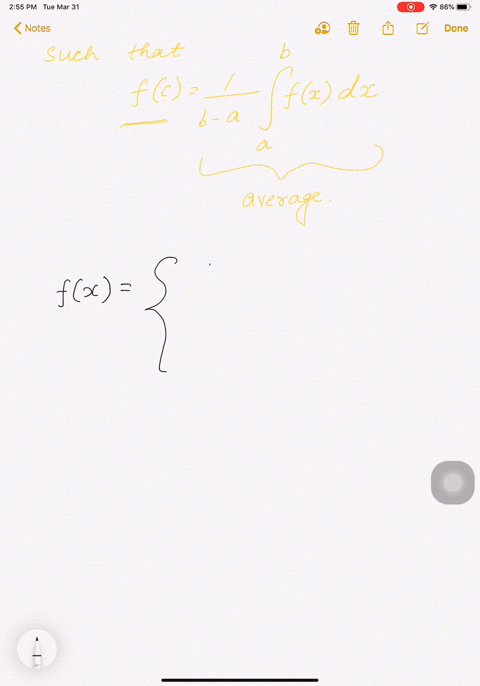 2:55 PM Tue Mar 31
86%
Notes
Done
Such that
f(c) = 1/(b-a) ∫_a^b f(x) dx
average.
f(x) = {